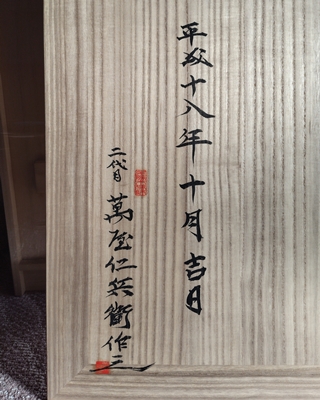 平成十八年十月吉日
二代目 萬屋仁兵衛作